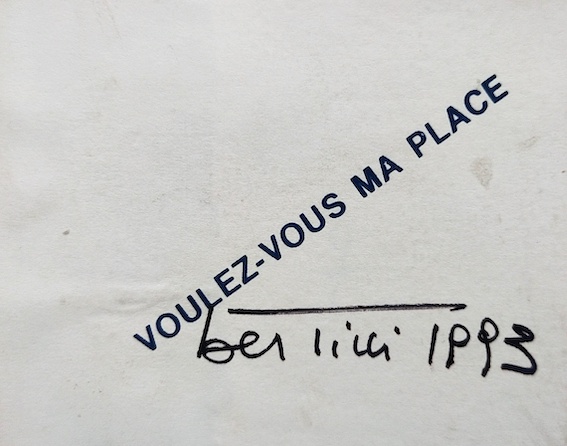 VOULEZ-VOUS MA PLACE
1993